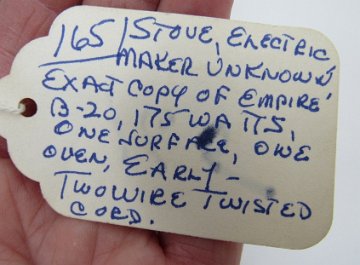 165/ STOVE, ELECTRIC,
MAKER UNKNOWN,
EXACT COPY OF EMPIRE
B-20, 175 WATTS,
ONE SURFACE, ONE
OVEN, EARLY -
TWO WIRE TWISTED
CORD.